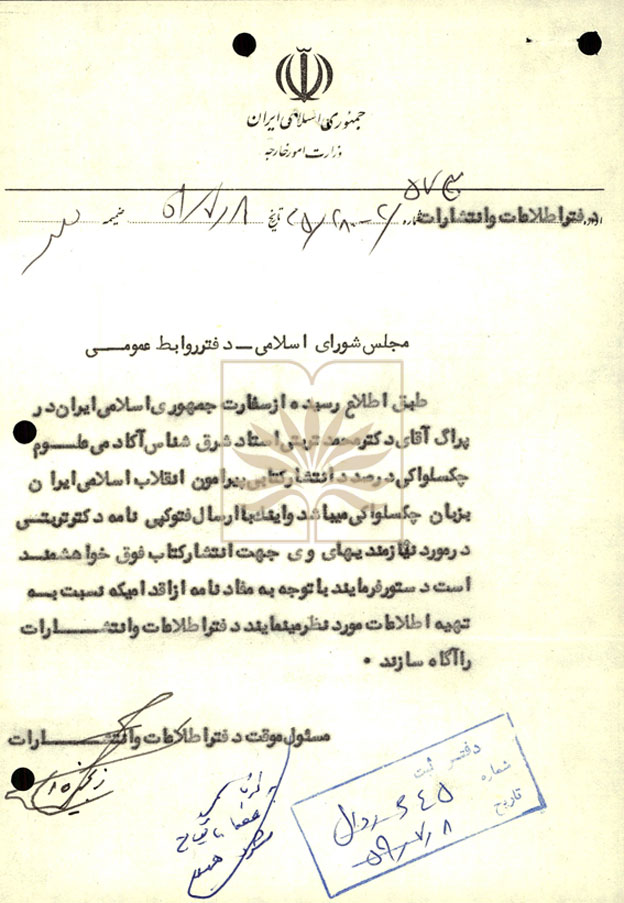 جمهوری اسلامی ایران
وزارت امور خارجه
دفتر اطلاعات و انتشارات شماره تاریخ ۵۹/۷/۸ ضمیمه
مجلس شورای اسلامی ــ دفتر روابط عمومــی
طبق اطلاع رسیده از سفارت جمهوری اسلامی ایران در
پراگ آقای دکتر محمد تربتی استاد شرق شناس آکادمی علـــوم
چکسلواکی درصدد انتشار کتابی پیرامون انقلاب اسلامی ایران
بزبان چکسلواکی میباشد واینک با ارسال فتوکپی نامه دکتر تربتــی
در مورد نیازمندیهای وی جهت انتشار کتاب فوق خواهشمنــد
است دستور فرمایند با توجه به مفاد نامه از اقدامیکه نسبت بــه
تهیه اطلاعات مورد نظر مینمایند دفتر اطلاعات و انتشـــــارات
را آگاه سازند .
مسئول موقت دفتر اطلاعات و انتشـــــارات
دفتـر ثبت
شماره
تاریخ ۵۹/۷/۸